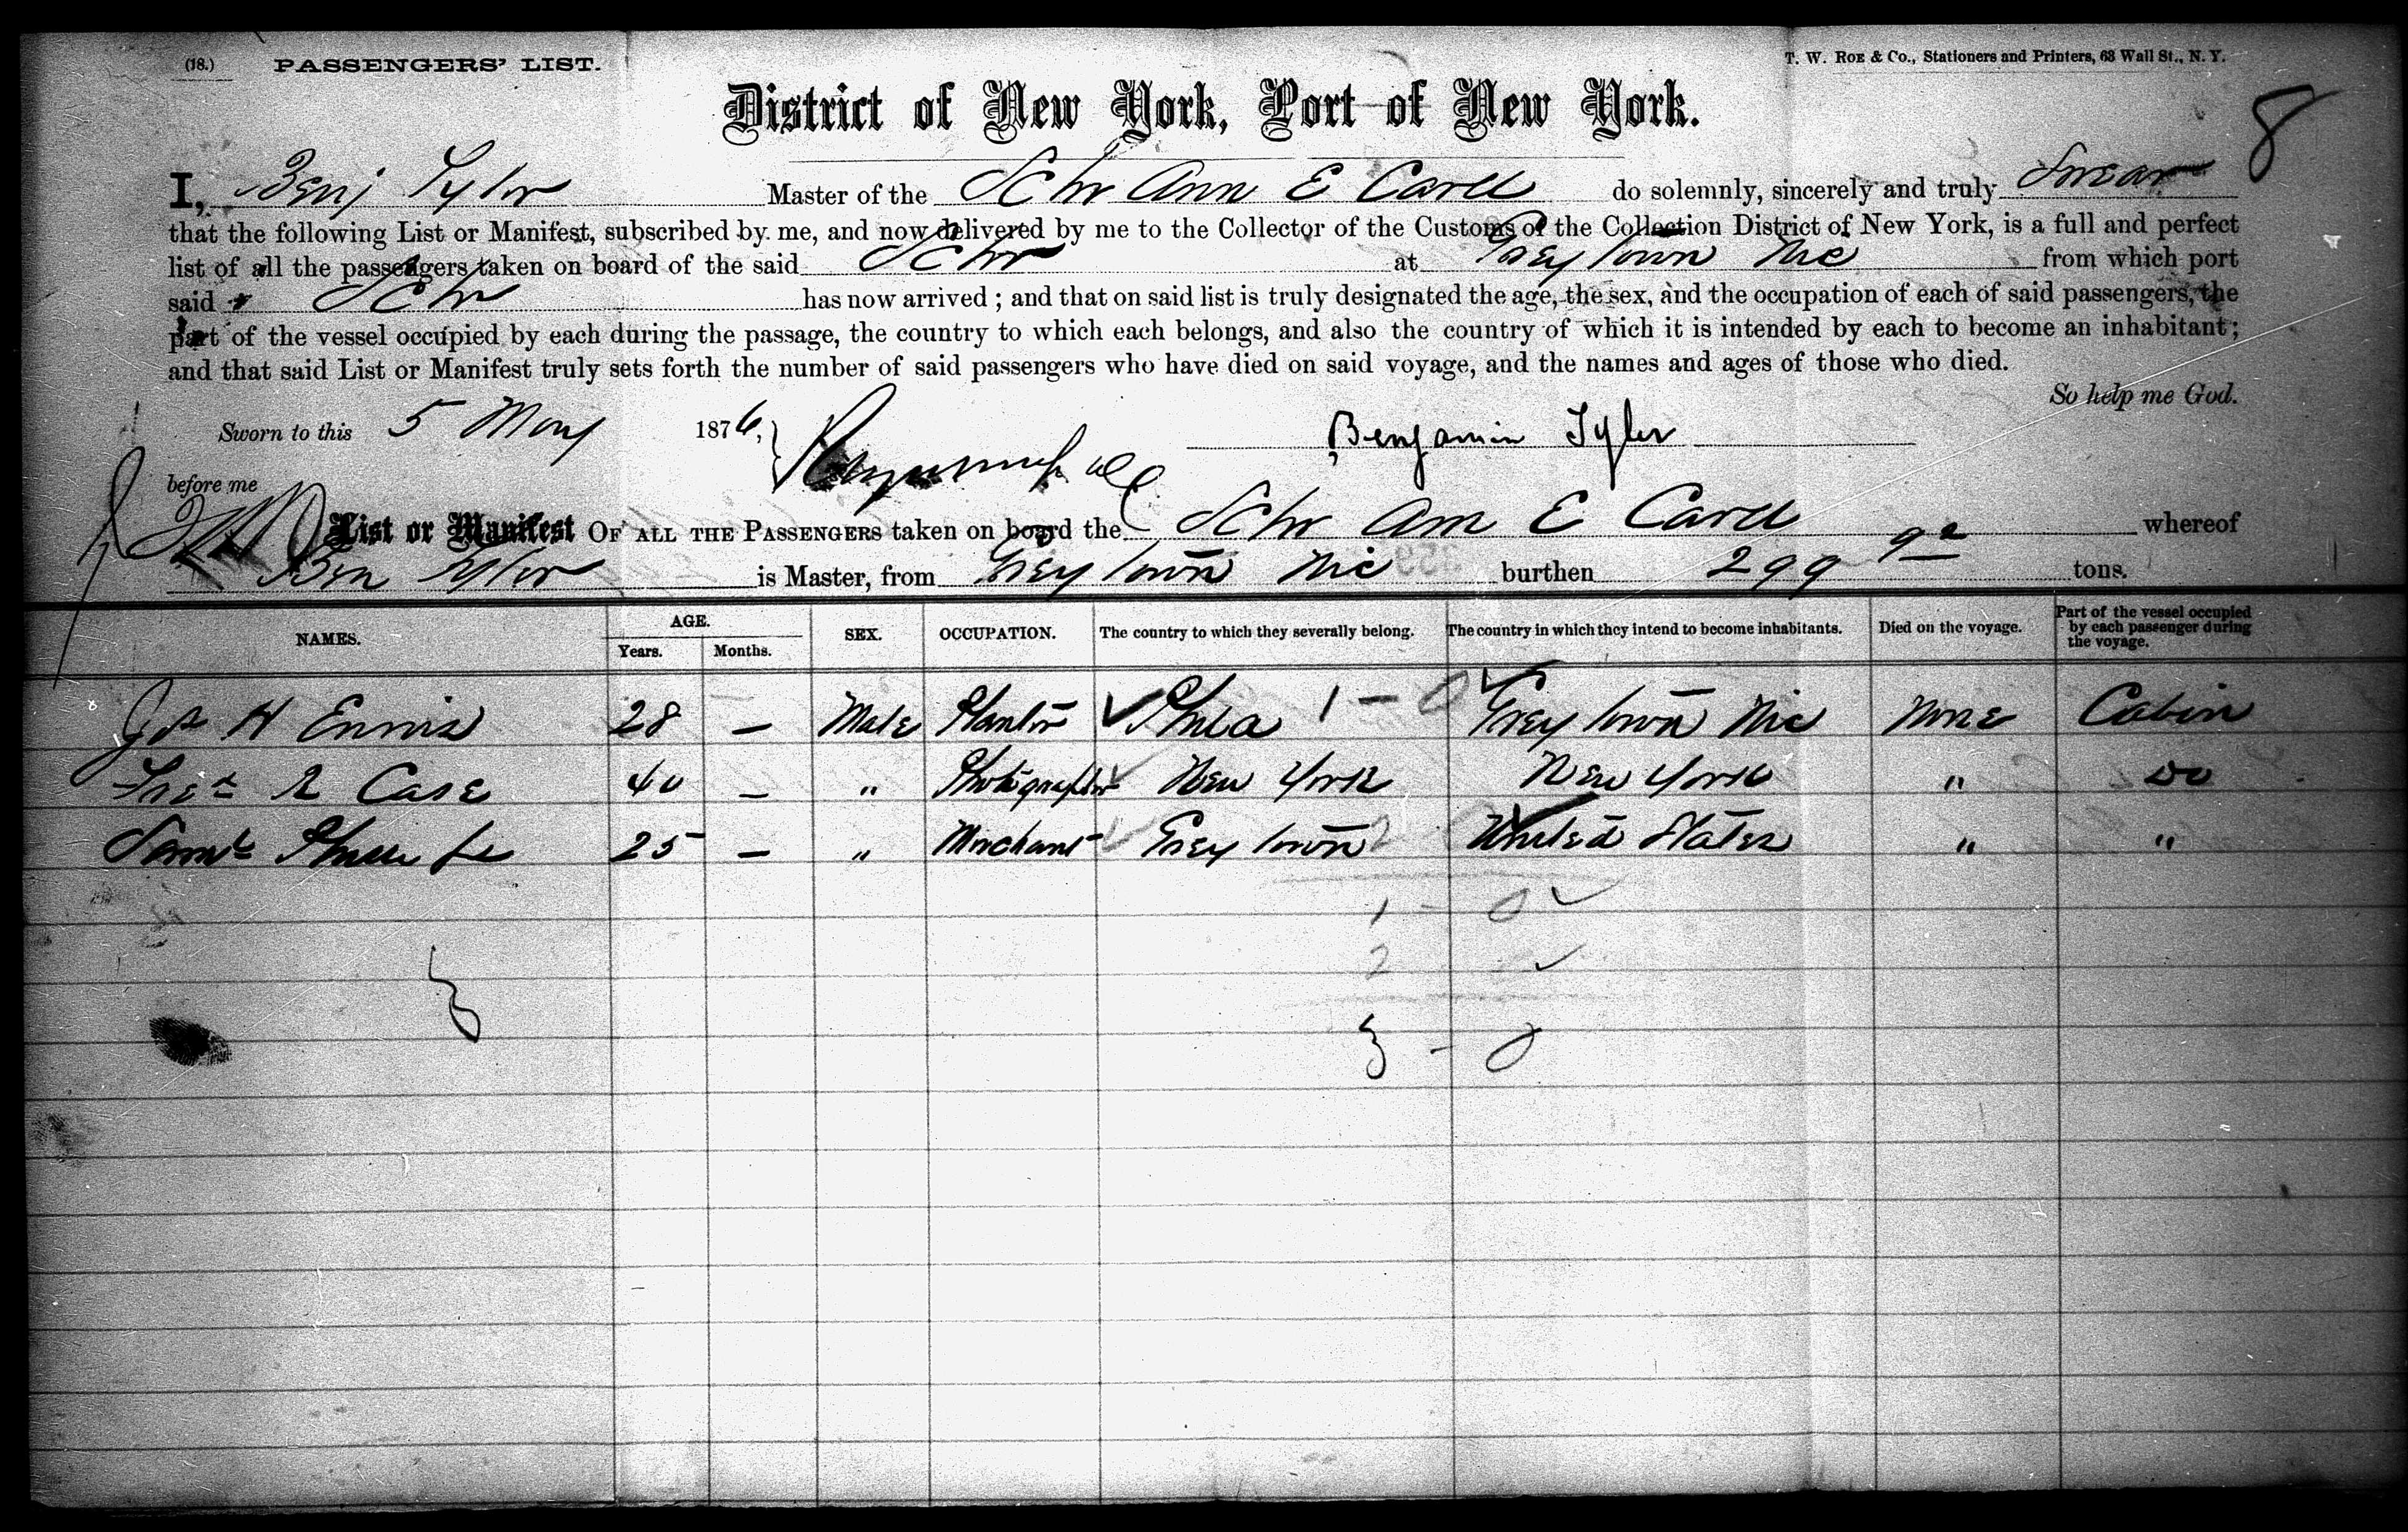 (18.) PASSENGERS' LIST.
T. W. ROE & Co., Stationers and Printers, 63 Wall St., N. Y.
8
District of New York, Port of New York.
I, Benj Tyler Master of the Schr Ann E Carll do solemnly, sincerely and truly Swear
that the following List or Manifest, subscribed by me, and now delivered by me to the Collector of the Customs of the Collection District of New York, is a full and perfect
list of all the passengers taken on board of the said Schr at Grey Town Nic from which port
said Schr has now arrived ; and that on said list is truly designated the age, the sex, and the occupation of each of said passengers, the
part of the vessel occupied by each during the passage, the country to which each belongs, and also the country of which it is intended by each to become an inhabitant ;
and that said List or Manifest truly sets forth the number of said passengers who have died on said voyage, and the names and ages of those who died.
So help me God.
Sworn to this 5 May 1876, Benjamin Tyler
before me
List or Manifest OF ALL THE PASSENGERS taken on board the Schr Ann E Carll whereof
Ben Tyler is Master, from Grey Town Nic burthen 299 92 tons.
NAMES. AGE. Years. Months. SEX. OCCUPATION. The country to which they severally belong. The country in which they intend to become inhabitants. Died on the voyage. Part of the vessel occupied by each passenger during the voyage.
H Ennis 28 — Male Planter Phila 1 - 0 Grey Town Nic None Cabin
Fred R Case 40 — " Photographer New York New York " do
Saml 25 — " Merchant Grey Town 2 United States " "
1 - 0
2
3 - 0